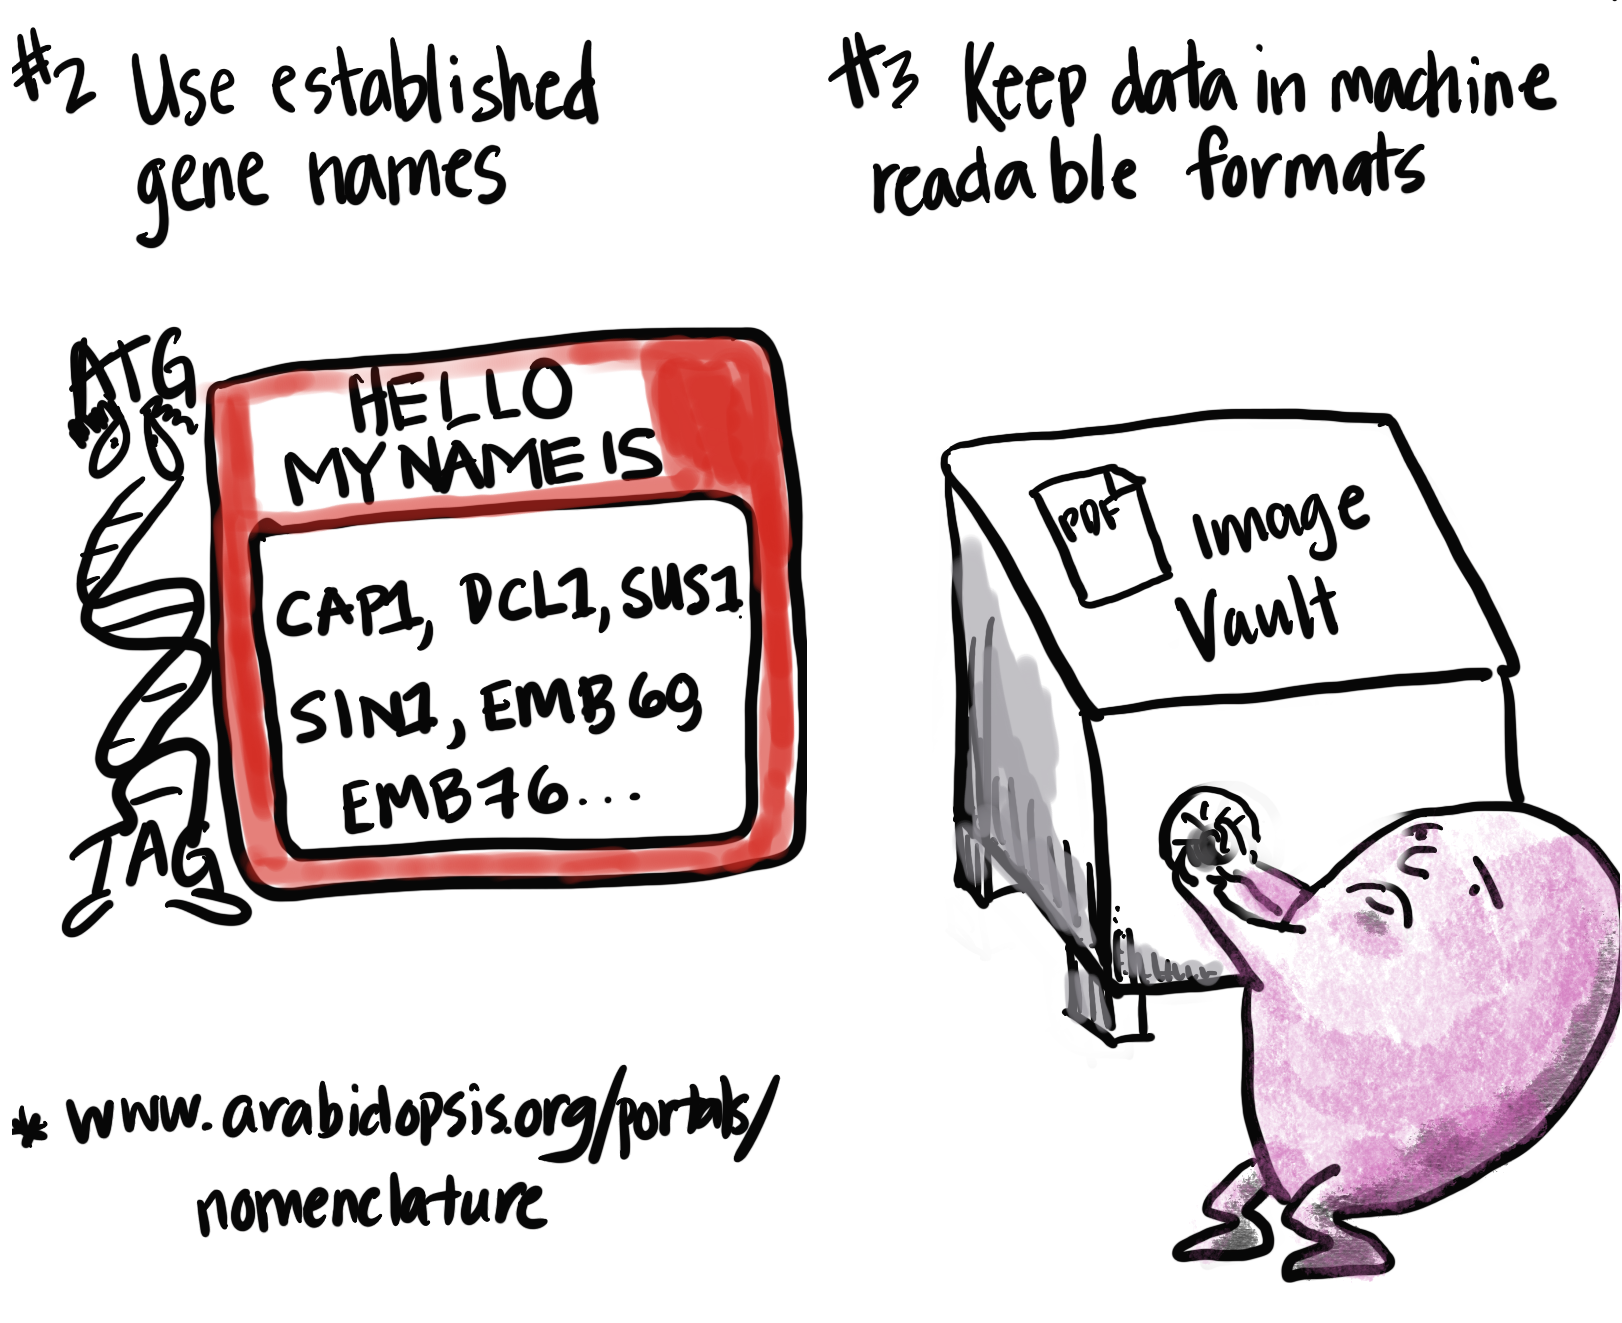 #2 Use established
gene names
ATG
HELLO
MY NAME IS
CAP1, DCL1, SUS1
SIN1, EMB 69
EMB76...
TAG
* www.arabidopsis.org/portals/
nomenclature
#3 Keep data in machine
readable formats
PDF
Image
Vault